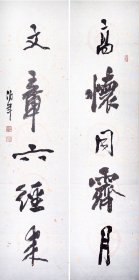 高懷同霽月
文章六經來